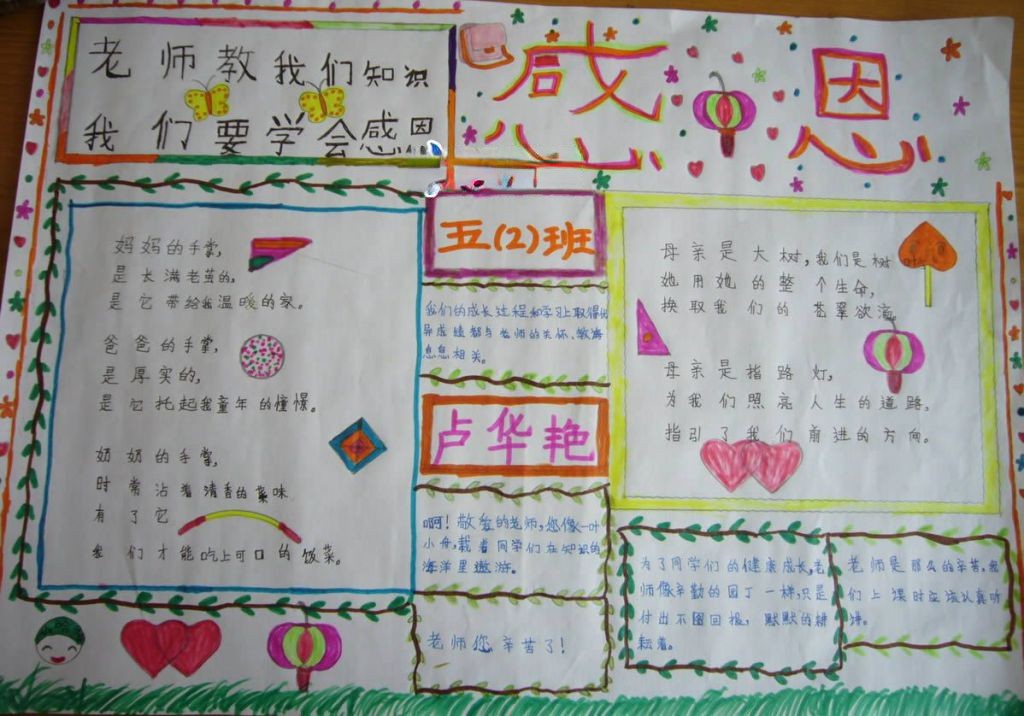 老师教我们知识
我们要学会感恩
感恩
妈妈的手掌,
是长满老茧的,
是它带给我温暖的家。
爸爸的手掌,
是厚实的,
是它托起我童年的憧憬。
奶奶的手掌,
时常沾着清香的菜味
有了它
我们才能吃上可口的饭菜。
五(2)班
我们的成长过程和学习上取得优
异成绩都与老师的关怀、教诲
息息相关。
卢华艳
啊!敬爱的老师,您像一叶
小舟,载着同学们在知识的
海洋里遨游。
老师您辛苦了!
母亲是大树,我们是树
她用她的整个生命,
换取我们的苍翠欲滴。
母亲是指路灯,
为我们照亮人生的道路,
指引了我们前进的方向。
为了同学们的健康成长,老
师像辛勤的园丁一样,只是
付出不图回报,默默的耕
耘着。
老师是那么的辛苦,我
们上课时应该认真听
讲。